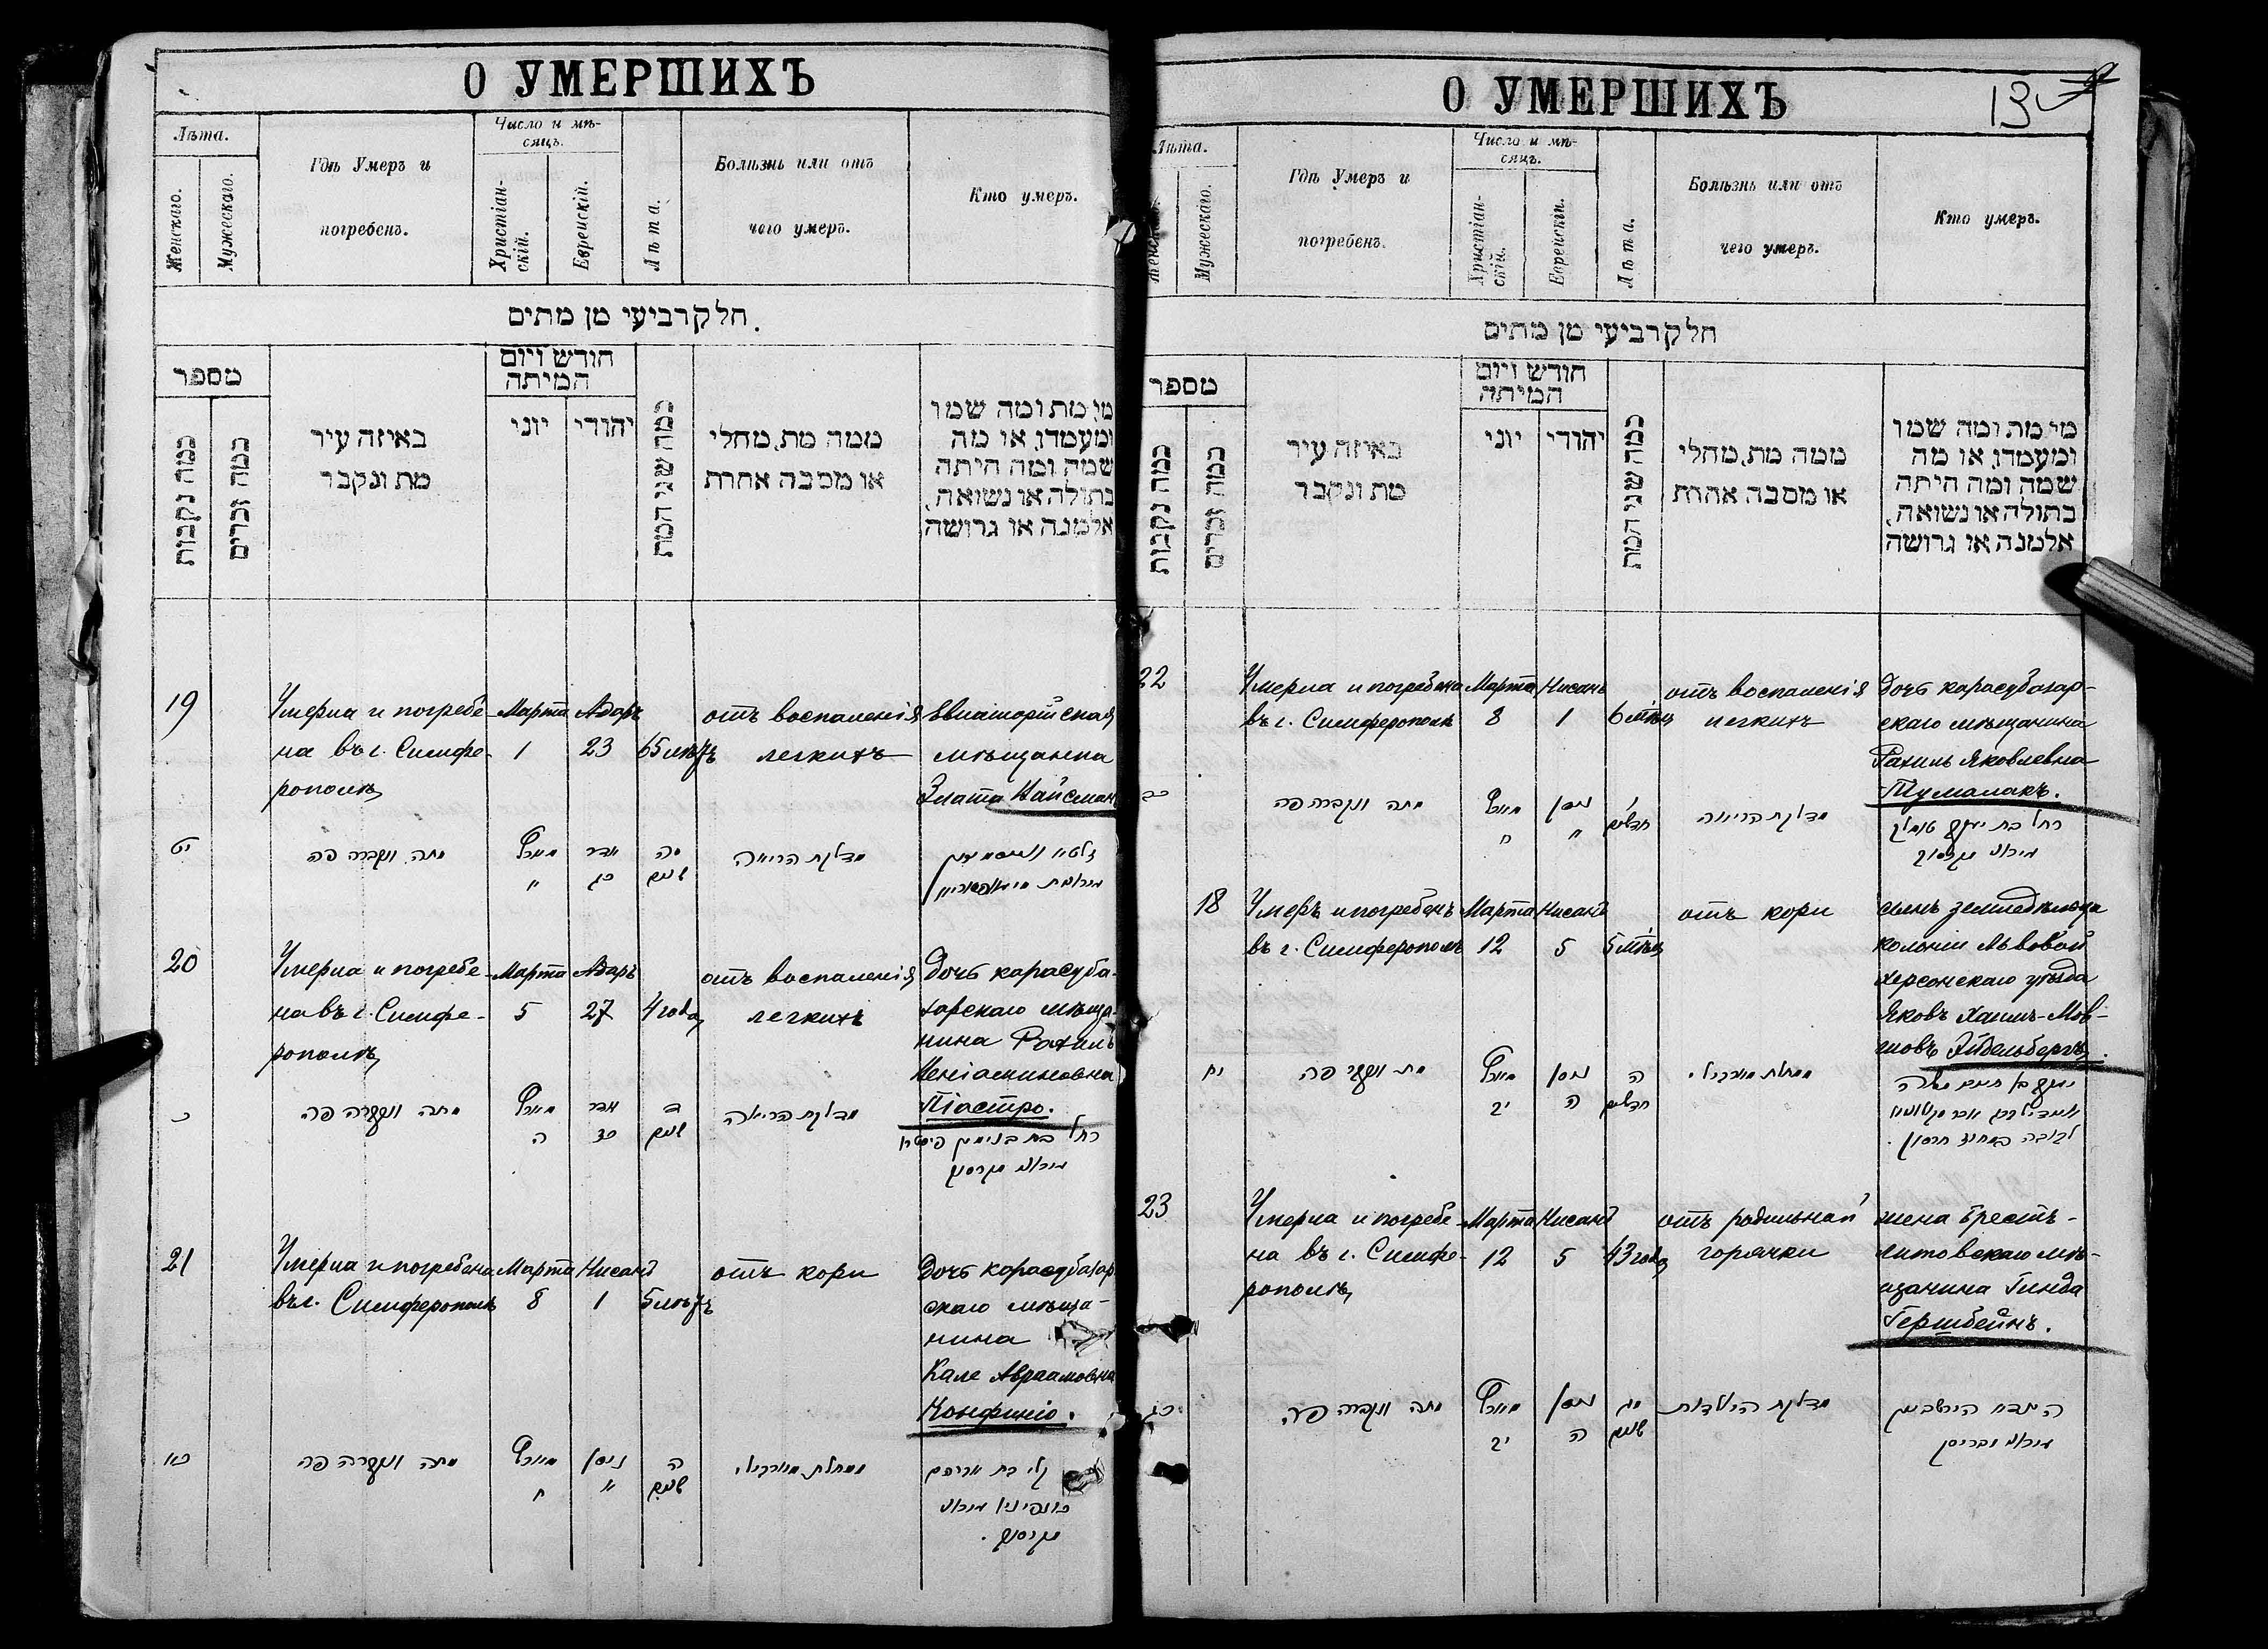 О УМЕРШИХЪ
Лѣта.
Женскаго.
Мужескаго.
Гдѣ Умеръ и
погребенъ.
Число и мѣ-
сяцъ.
Христіан-
скій.
Еврейскій.
Лѣта.
Болѣзнь или отъ
чего умеръ.
Кто умеръ.
חלק רביעי מן מתים
מספר
כמה נקבות
כמה זכרים
באיזה עיר
מת ונקבר
חודש ויום
המיתה
יוני
יהודי
כמה שני המת
ממה מת, מחלי
או מסבה אחרת
מי מת ומה שמו
ומעמדו, או מה
שמה ומה היתה
בתולה או נשואה,
אלמנה או גרושה
19
Умерла и погребе-
на въ г. Симфе-
рополѣ
Марта
1
Адаръ
23
65 лѣтъ
отъ воспаленія
легкихъ
Евпаторійская
мѣщанка
Злата Найсман
יט
מתה ונקברה פה
אדר
כג
סה
שנים
מדלקת הריאה
20
Умерла и погребе-
на въ г. Симфе-
рополѣ
Марта
5
Адаръ
27
4 года
отъ воспаленія
легкихъ
Дочь карасуба-
зарскаго мѣща-
нина Рахиль
Веніаминовна
Піастро.
כ
מתה ונקברה פה
ה
אדר
כז
ד
שנים
מדלקת הריאה
רחל בת בנימין
21
Умерла и погребена
въ г. Симферополѣ
Марта
8
Нисанъ
1
5 лѣтъ
отъ кори
Дочь карасубазар
скаго мѣща-
нина
Кале Авраамовна
Конфино.
כא
מתה ונקברה פה
ח
ניסן
א
ה
שנים
קלי בת אברהם
О УМЕРШИХЪ
13
Лѣта.
Женскаго.
Мужескаго.
Гдѣ Умеръ и
погребенъ.
Число и мѣ-
сяцъ.
Христіан-
скій.
Еврейскій.
Лѣта.
Болѣзнь или отъ
чего умеръ.
Кто умеръ.
חלק רביעי מן מתים
מספר
כמה נקבות
כמה זכרים
באיזה עיר
מת ונקבר
חודש ויום
המיתה
יוני
יהודי
כמה שני המת
ממה מת, מחלי
או מסבה אחרת
מי מת ומה שמו
ומעמדו, או מה
שמה ומה היתה
בתולה או נשואה,
אלמנה או גרושה
22
Умерла и погребена
въ г. Симферополѣ
Марта
8
Нисанъ
1
6 мѣц
отъ воспаленія
легкихъ
Дочь карасубазар-
скаго мѣщанина
Рахиль Яковлевна
Тумалакъ.
כב
מתה ונקברה פה
ח
ניסן
א
ו
חדשים
מדלקת הריאה
רחל בת יעקב
18
Умеръ и погребенъ
въ г. Симферополѣ
Марта
12
Нисанъ
5
5 мѣц
отъ кори
сынъ земледѣльца
колоніи Львовой
херсонскаго уѣзда
Яковъ Хаимъ-Мов-
шовъ Эйдельбергъ.
יח
מת ונקבר פה
יב
ניסן
ה
ה
חדשים
יעקב בן חיים משה
23
Умерла и погребе-
на въ г. Симфе-
рополѣ
Марта
12
Нисанъ
5
43 года
отъ родильной
горячки
жена Брестъ-
литовскаго мѣ-
щанина Гинда
Гершбейнъ.
כג
מתה ונקברה פה
יב
ניסן
ה
מג
שנים